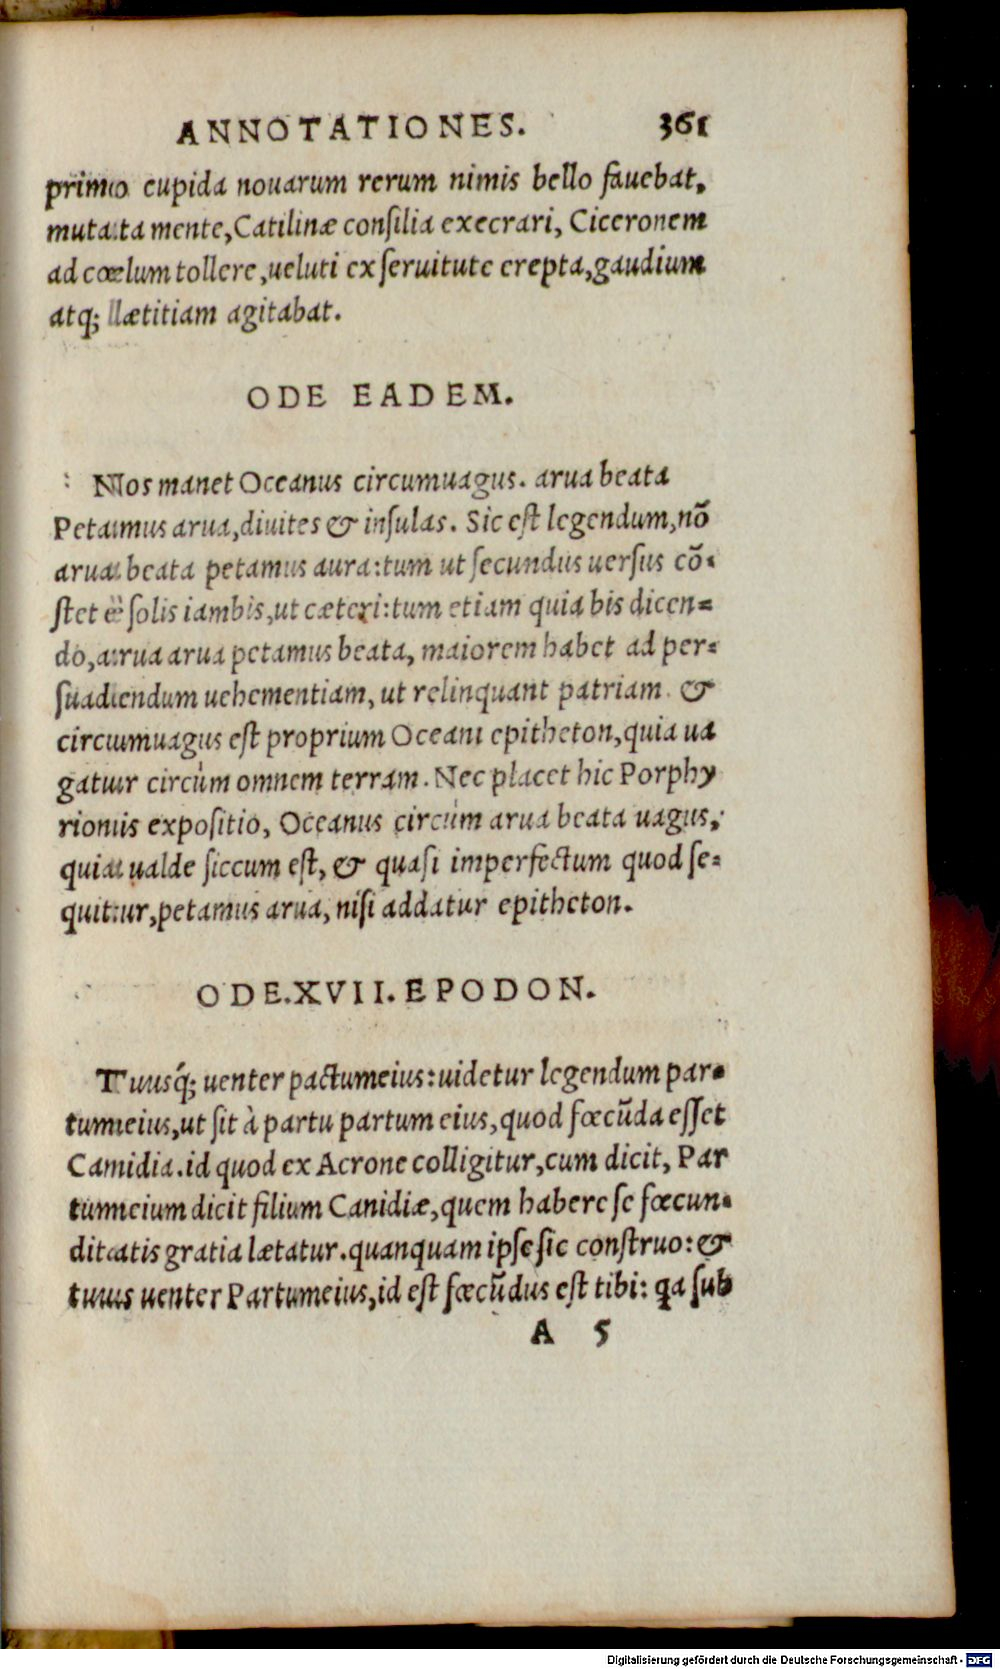 ANNOTATIONES. 361
primo cupida nouarum rerum nimis bello fauebat,
mutata mente, Catilinæ conſilia execrari, Ciceronem
ad cœlum tollere, ueluti ex ſeruitute erepta, gaudium
atq; lætitiam agitabat.
ODE EADEM.
Nos manet Oceanus circumuagus. arua beata
Petamus arua, diuites & inſulas. Sic eſt legendum, nō
arua beata petamus aura: tum ut ſecundus uerſus cō-
ſtet è ſolis iambis, ut cæteri: tum etiam quia bis dicen=
do, arua arua petamus beata, maiorem habet ad per=
ſuadendum uehementiam, ut relinquant patriam. &
circumuagus eſt proprium Oceani epitheton, quia ua
gatur circùm omnem terram. Nec placet hic Porphy
rionis expoſitio, Oceanus circùm arua beata uagus,
quia ualde ſiccum eſt, & quaſi imperfectum quod ſe=
quitur, petamus arua, niſi addatur epitheton.
ODE.XVII.EPODON.
Tuusq́; uenter pactumeius: uidetur legendum par-
tumeius, ut ſit à partu partum eius, quod fœcūda eſſet
Canidia. id quod ex Acrone colligitur, cum dicit, Par
tumeium dicit filium Canidiæ, quem habere ſe fœcun-
ditatis gratia lætatur. quanquam ipſe ſic conſtruo: &
tuus uenter Partumeius, id eſt fœcūdus eſt tibi: qa ſub
A 5
Digitalisierung gefördert durch die Deutsche Forschungsgemeinschaft - DFG